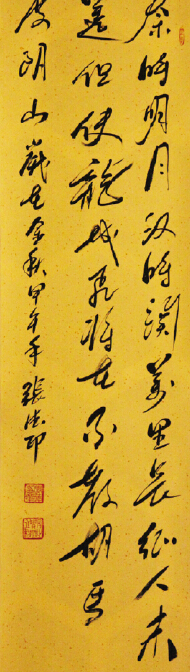 秦時明月汉時関萬里長征人未
還但使龍城飛将在不教胡馬
度阴山歲在金秋甲午年張印